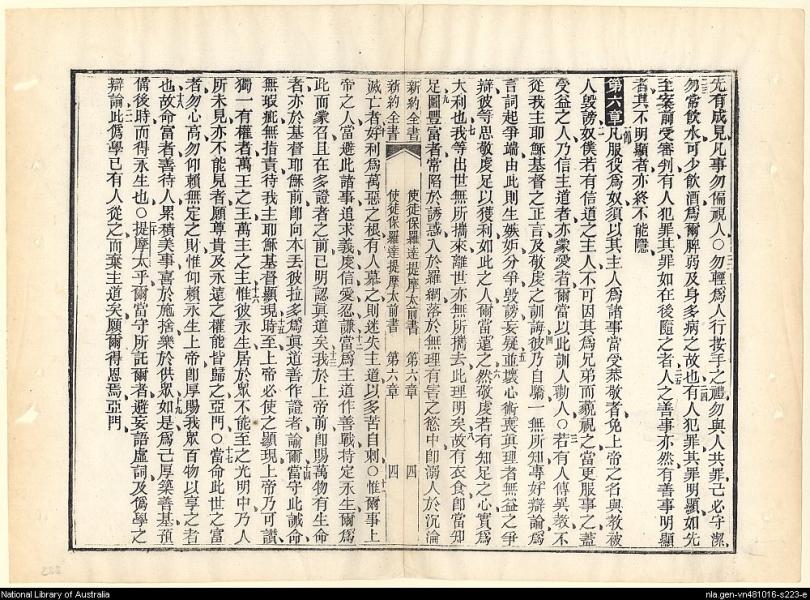 先有成見凡事勿偏視人○勿輕爲人行按手之禮勿與人共罪己必守潔
勿常飲水可少飲酒爲爾脾弱及身多病之故也有人犯罪其罪明顯如先
至案前受審判有人犯罪其罪如在後隨之者人之善事亦然有善事明顯
者其不明顯者亦終不能隱
第六章凡服役爲奴須以其主人爲諸事當受恭敬者免上帝之名與教被
人毀謗奴僕若有信道之主人不可因其爲兄弟而藐視之當更服事之蓋
受益之人乃信主道者亦蒙愛者爾當以此訓人勸人○若有人傳異教不
從我主耶穌基督之正言及敬虔之訓誨彼乃自驕一無所知專好辯論爲
言詞起爭端由此則生嫉妒分爭毀謗妄疑並壞心術喪真理者無益之爭
辯彼等思敬虔足以獲利如此之人爾當遠之然敬虔若有知足之心實爲
大利也我等出世無所攜來離世亦無所攜去此理明矣故有衣食即當知
足圖豐富者常陷於誘惑入於羅網落於無理有害之慾中即溺人於沉淪
新約全書 使徒保羅達提摩太前書 第六章 四
新約全書 使徒保羅達提摩太前書 第六章 四
滅亡者好利爲萬惡之根有人慕之則迷失主道以多苦自刺○惟爾事上
帝之人當避此諸事追求義虔信愛忍謙當爲主道作善戰特定永生爾爲
此而蒙召且在多證者之前已明認真道矣我於上帝前即賜萬物有生命
者亦於基督耶穌前即向本丟彼拉多爲真道善作證者諭爾當守此誡命
無瑕疵無指責待我主耶穌基督顯現時至上帝必使之顯現上帝乃可讚
獨一有權者萬王之王萬主之主惟彼永生居於眾不能至之光明中乃人
所未見亦不能見者願尊貴及永遠之權能皆歸之亞門○當命此世之富
者勿心高勿仰賴無定之財惟仰賴永生上帝即厚賜我眾百物以享之者
也故命富者善待人累積美事喜於施捨樂於供眾如是爲己厚築善基預
備後時而得永生也○提摩太乎爾當守所託爾者避妄語虛詞及僞學之
辯論此僞學已有人從之而棄主道矣願爾得恩焉亞門
National Library of Australia
nla.gen-vn481016-s223-e